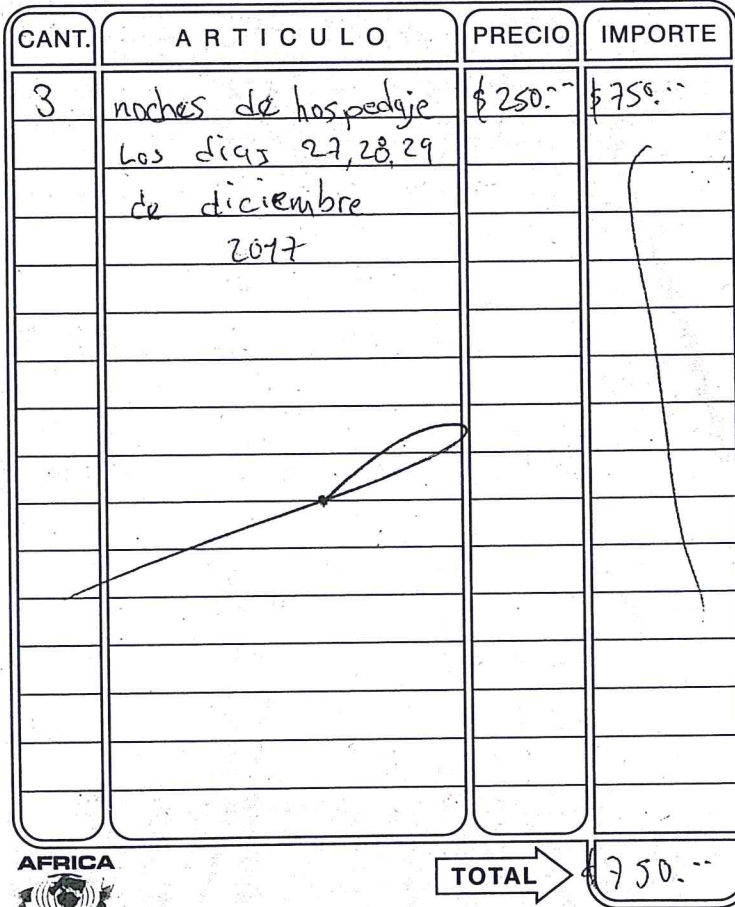 CANT. ARTICULO PRECIO IMPORTE
3 noches de hospedaje $250.-- $750.--
Los dias 27, 28, 29
de diciembre
2017
AFRICA
TOTAL $750.--